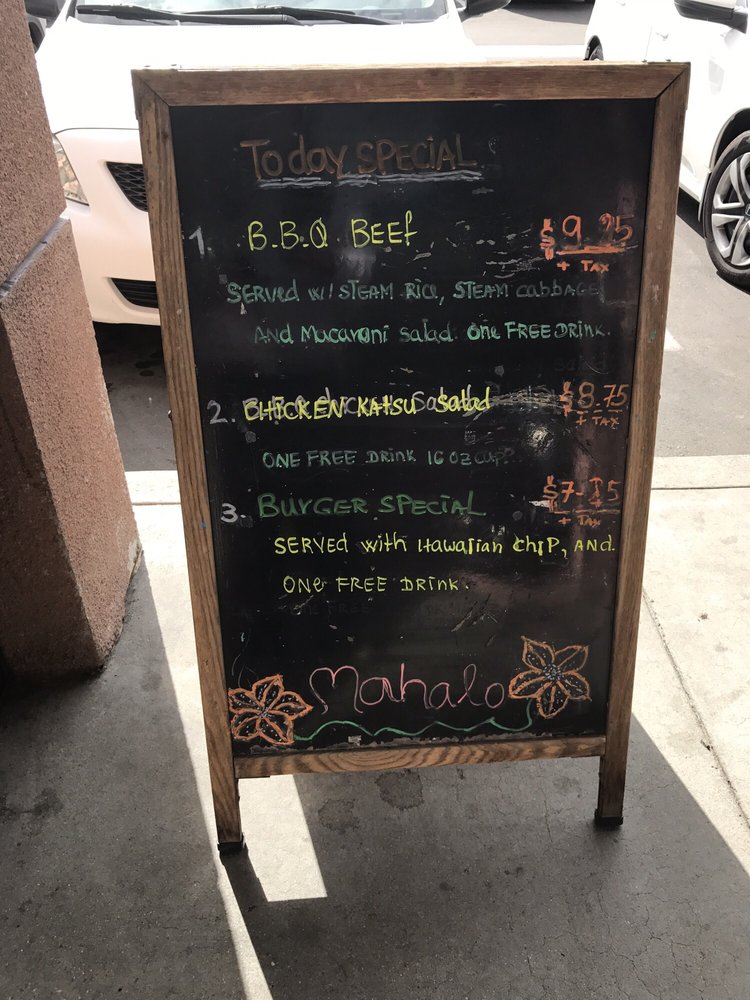 Today SPECIAL
1. B.B.Q BEEf $9.25
+ TAX
SERVED w/ STEAM RICE, STEAM cabbage
AND Macaroni salad. One FREE DRINK.
2. CHICKEN KATSU Salad $8.75
+ TAX
ONE FREE DRINK 16 OZ cup.
3. BURGER SPECIAL
+ TAX
SERVED with Hawaiian CHIP, AND
ONE FREE DRINK.
Mahalo